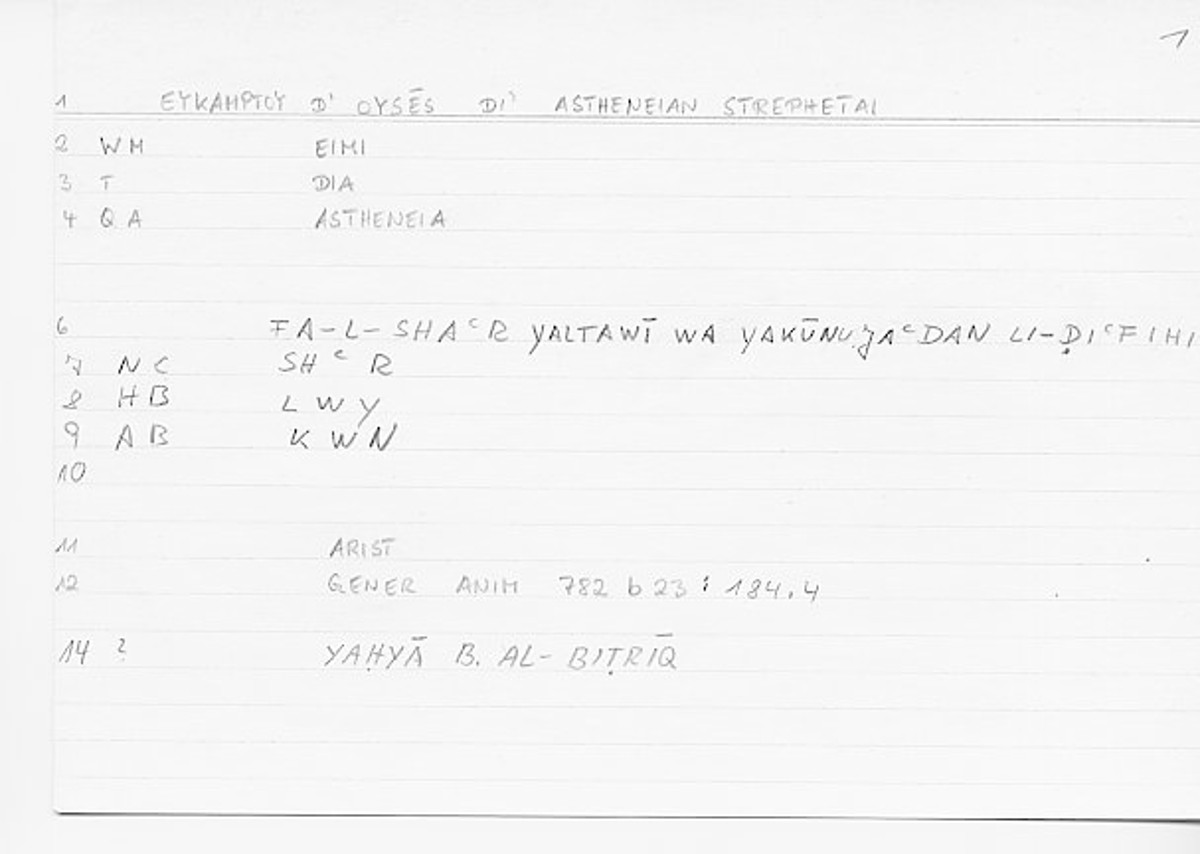 1
1 EYKAMPTOY D' OYSĒS DI' ASTHENEIAN STREPHETAI
2 WM EIMI
3 T DIA
4 QA ASTHENEIA
6 FA-L-SHAᶜR YALTAWĪ WA YAKŪNU ǦAᶜDAN LI-ḌIᶜFIHI
7 NC SHᶜR
8 HB LWY
9 AB KWN
10
11 ARIST
12 GENER ANIM 782 b 23 : 184.4
14 ? YAḤYĀ B. AL-BIṬRĪQ